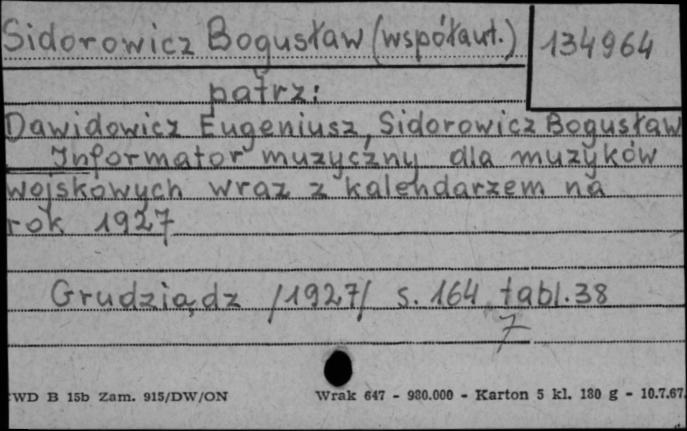 Sidorowicz Bogusław (współaut.) 134964
patrz:
Dawidowicz Eugeniusz, Sidorowicz Bogusław
Informator muzyczny dla muzyków
wojskowych wraz z kalendarzem na
rok 1927
Grudziądz /1927/ s. 164 tabl. 38
7
WD B 15b Zam. 915/DW/ON Wrak 647 - 980.000 - Karton 5 kl. 180 g - 10.7.67.